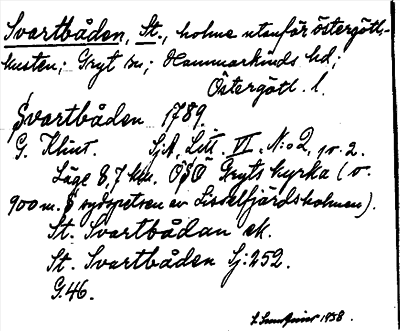 Svartbåden, St., holme utanför östergötl.-
kusten; Gryt sn; Hammarkinds hd;
Östergötl. l.
Svartbåden 1789.
G. Klint. Sj.A, Litt. VI. N:o 2, nr. 2.
Läge 8,7 km. OSO Gryts kyrka (o.
900 m. S sydspetsen av
St. Svartbådan ek.
St. Svartbåden Sj: 252.
G.46.
1938.